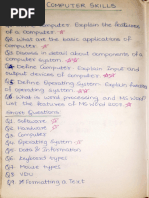 COMPUTER SKILLS
Computer. Explain the features
of a Computer.
Q2 What are the basic applications of
Computer.
Q3 in detail about components of a
Computer system.
Q4 Define Computer. Explain Input and
output devices of computer.
Q5 Define Operating System. Explain
of operating System.
Q6 What is word processing and MS Word
List the features of MS Word 2007.
Short Questions
Q1 Software
Q2 Hardware
Q3 Computer
Q4 Operating System
Q5 Data & Information
Q6 Keyboard types
Q7 Mouse types
Q8 VDU
Q9 Formatting a Text